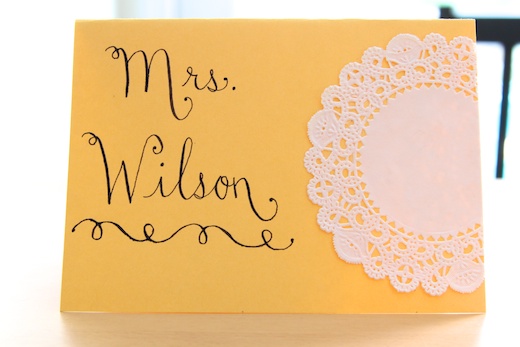 Mrs.
Wilson